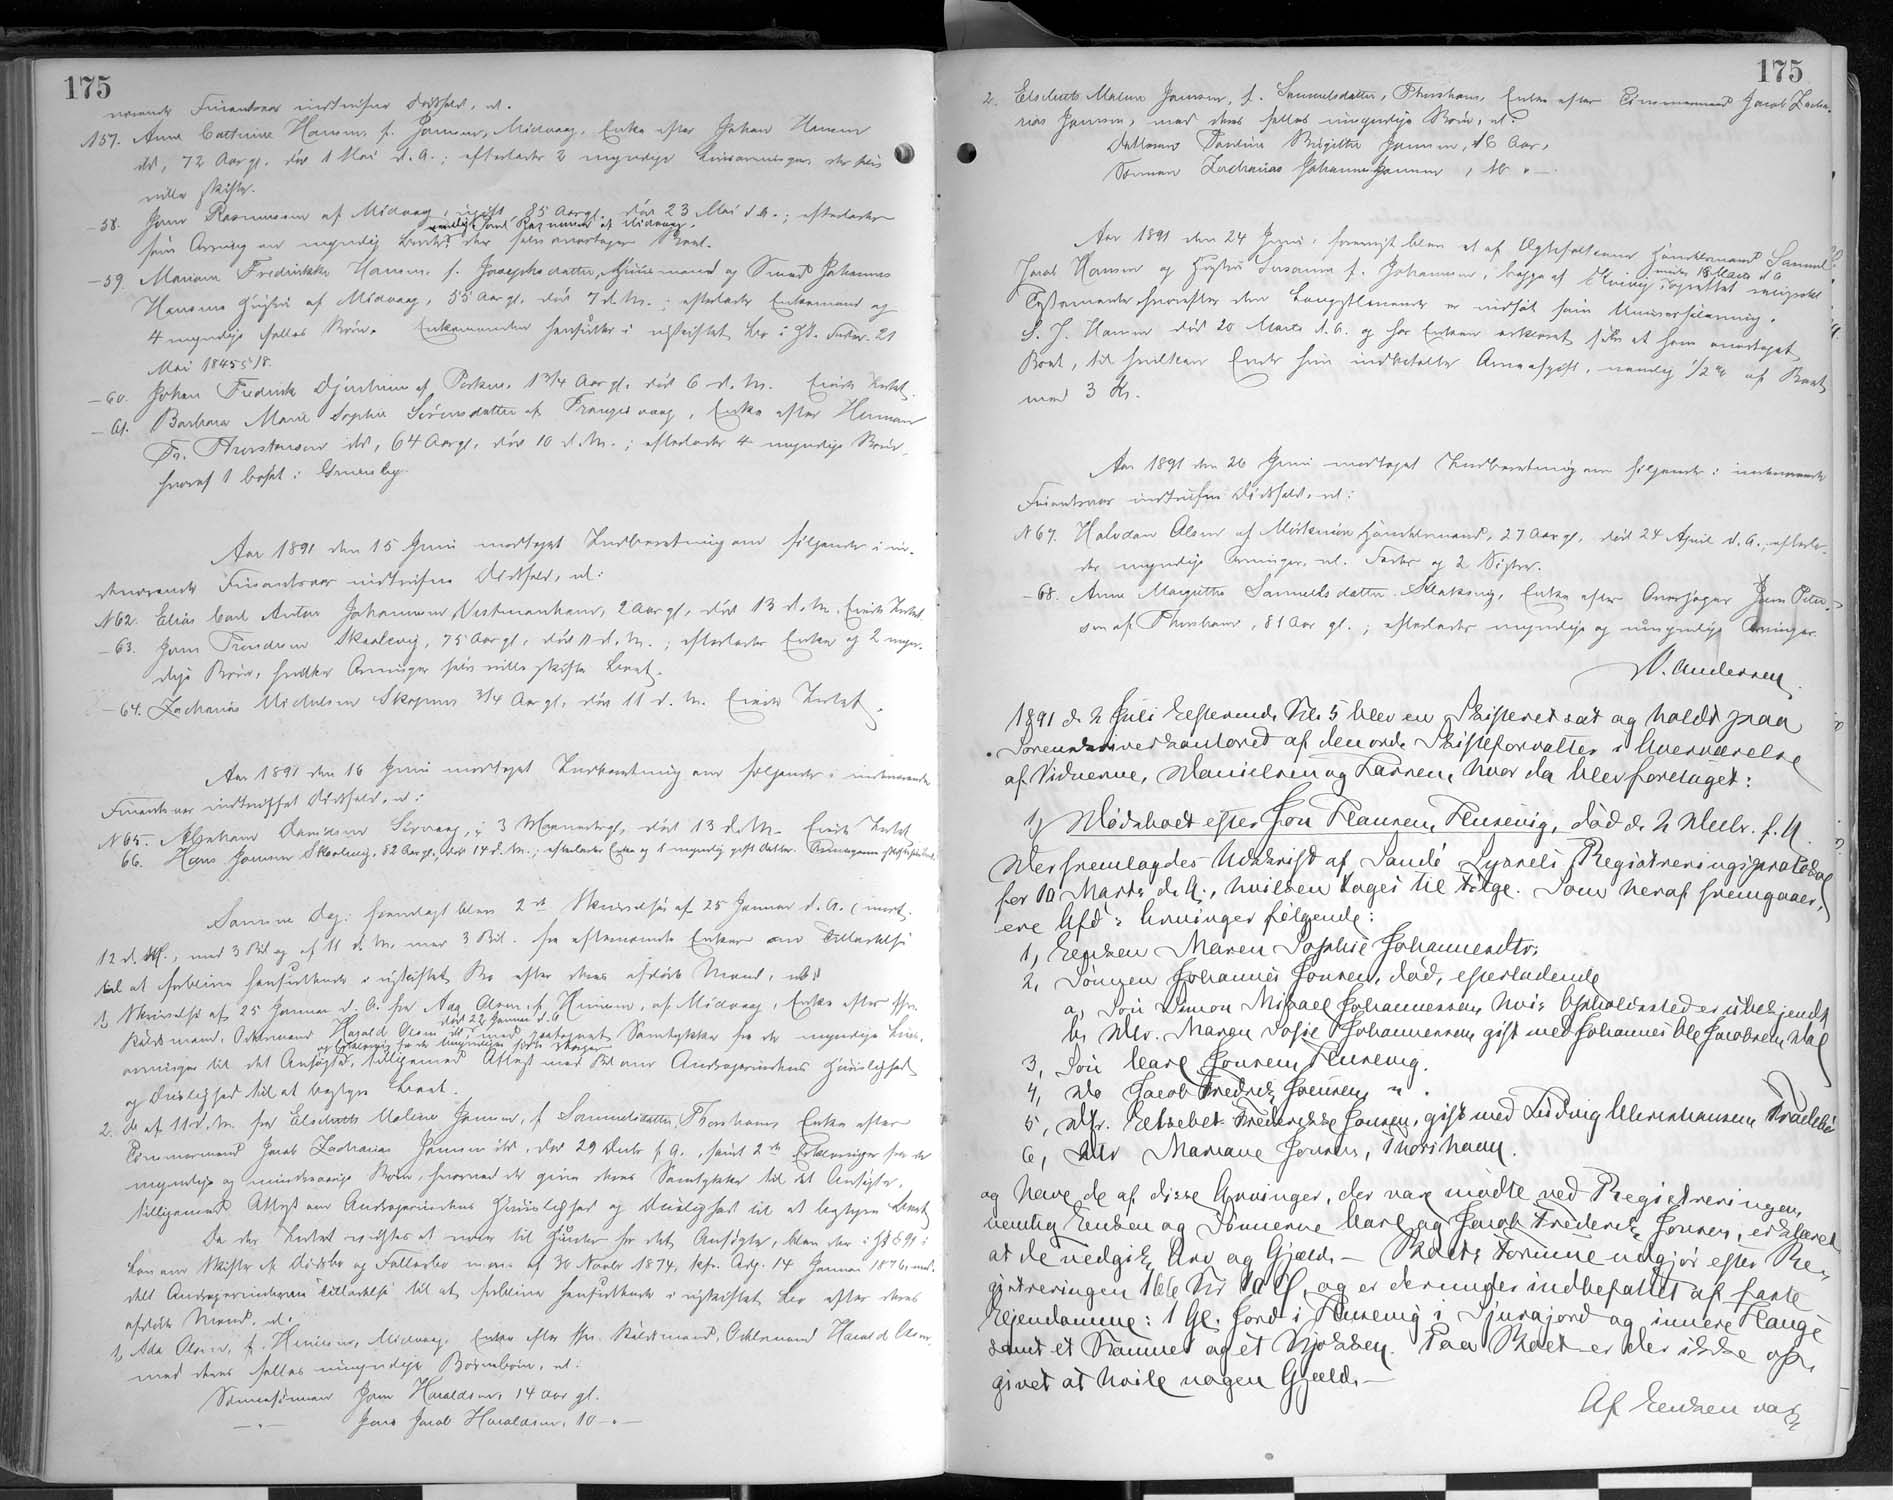 175
nærende Finantsaar indtrufne Dødsfald, nl.
N57. Anne Cathrine Hansen, f. Jensen, Midvaag, Enke efter Johan Hansen
ds, 72 Aar gl. død 1 Mai d. A.; efterlader 2 myndige Livsarvinger, der selv
ville skifte.
-58. Jens Rasmussen af Midvaag, ugift, 85 Aar gl. død 23 Mai d. A.; efterlader
som Arving en myndig der selv overtager Boet.
-59. Mariane Fredrikke Hansen, f. Josephsdatter, Huusmand og Smed Johannes
Hansens Hustru af Midvaag, 55 Aar gl., død 7 d. M.; efterlader Enkemand og
4 myndige fælles Børn. Enkemanden hensidder i uskiftet Bo i H. t. Fordn. 21
Mai 1845 § 18.
-60. Johan Fredrik Djurhuus af Porkere, 1 3/4 Aar gl. død 6 d. M. Eiede Intet.
-61. Barbara Marie Sophie Sørensdatter af Trangisvaag, Enke efter Herman
Fr. Thorstensen ds, 64 Aar gl. død 10 d. M.; efterlader 4 myndige Børn,
hvoraf 1 bosat i Grimsby.
Aar 1891 den 15 Juni modtaget Indberetning om følgende i in-
deværende Finantsaar indtrufne Dødsfald, nl:
N62. Elias Carl Anton Johannesen, Vestmanhavn, 2 Aar gl., død 13 d. M. Eiede Intet.
-63. Jens Joensen Skaalevig, 75 Aar gl., død 11 d. M.; efterlader Enke og 2 myn-
dige Børn, hvilke Arvinger selv ville skifte Boet.
-64. Zacharias Michelsen Skopen 3/4 Aar gl., død 11 d. M. Eiede Intet.
Aar 1891 den 16 Juni modtaget Indberetning om følgende i indeværende
Finantsaar indtruffet Dødsfald, nl:
N65. Abraham Danielsen Sørvaag, 3 Maaneder gl., død 13 d. M. Eiede Intet.
66. Hans Jensen Skaalevig, 82 Aar gl., død 14 d. M.; efterlader Enke og 1 myndig gift Datter.
Samme Dag: fremlagt blev 2de Skrivelser af 25 Januar d. A. (mod.
12 d. M., med 3 Bil og af 11 d. M. med 3 Bil. fra efternævnte Enker om Tilladelse
til at forblive hensiddende i uskiftet Bo efter deres afdøde Mænd, nl:
1, Skrivelse af 25 Januar d. A. fra Ada Olsen, f. Heinesen, af Midvaag, Enke efter
Harald Olsen ds, død 22 Januar d. A. med Samtykke fra de myndige Livs-
arvinger til det Ansøgte, tilligemed Attest med Bil om Andragerindens Huuslighed
og Duelighed til at bestyre Boet.
2. Do af 11 d. M. fra Elsebeth Malene Jensen, f. Samuelsdatter, Thorshavn, Enke efter
Tømmermand Jacob Zacharias Jensen ds, død 29 Decbr f. A., samt 2de Erklæringer fra de
myndige og mindreaarige Børn, hvorved de give deres Samtykke til det Ansøgte,
tilligemed Attest om Andragerindens Huuslighed og Duelighed til at bestyre Boet
Da der Intet vidstes at være til Hinder for det Ansøgte, blev der i H. t. § 91 i
Lov om Skifte af Dødsbo og Fællesbo m. m. af 30 Novbr 1874, kfr. Adg. 14 Januar 1876, med-
delt Andragerinderne Tilladelse til at forblive hensiddende i uskiftet Bo efter deres
afdøde Mænd, nl:
1, Ada Olsen, f. Heinesen, Midvaag, Enke efter Harald Olsen
med deres fælles umyndige Børnebørn, nl:
Sønnesønnen Jens Haraldsen, 14 Aar gl.
— „ — Jens Jacob Haraldsen, 10 — „ —
175
2. Elsebeth Malene Jensen, f. Samuelsdatter, Thorshavn, Enke efter Tømmermand Jacob Zacha-
rias Jensen, med deres fælles umyndige Børn, nl:
Datteren Davine Birgitte Jensen, 16 Aar,
Sønnen Zacharias Johannes Jensen, 10 „ —
Aar 1891 den 24 Juni, foreviist blev et af Ægtefolkene Handelsmand Samuel
Jacob Hansen og Hustru Susanne f. Johannesen, begge af Kvivig, under 18 Marts d. A. oprettet reciprokt
Testamente hvorefter den Længstlevende er indsat som Universalarving.
S. J. Hansen død 20 Marts d. A. og har Enken erklæret sig at have overtaget
Boet, til hvilken Ende hun indbetalte Arveafgift, nemlig 1/2 % af Boet
med 3 Kr.
Aar 1891 den 26 Juni modtaget Indberetning om følgende i indeværende
Finantsaar indtrufne Dødsfald, nl:
N67. Halvdan Olsen af Mørkenøre Handelsmand, 27 Aar gl., død 24 April d. A., efterla-
der myndige Arvinger, nl. Fader og 2 Søstre.
-68. Anne Margrethe Samuelsdatter, Klaksvig, Enke efter Jens Peter-
sen af Thorshavn, 81 Aar gl.; efterlader myndige og umyndige Arvinger.
N. Andersen.
1891 d. 2 Juli Eftermid. Kl. 5 blev en Skifteret sat og holdt paa
Sorenskriverkontoret af den ord. Skifteforvalter i Overværelse
af Vidnerne, Danielsen og Larsen, hvor da blev foretaget:
1) Dødsboet efter Jon Hansen, Husevig, død d. 2 Decbr. f. A.
Der fremlagdes Udskrift af Sandø Syssels Registreringsprotokol
for 10 Marts d. A., hvilken tages til Følge. Som heraf fremgaaer,
ere Afd: Arvinger følgende:
1, Enken Maren Sophie Johannesdtr:
2, Sønnen Johannes Jonsen, død, efterladende
a, Søn Simon Mikael Johannessen, hvis Opholdssted er ubekjendt
b, Dtr. Maren Sofie Johannessen, gift med Johannes Ole Jacobsen, Dal
3, Søn Carl Jonsen, Husevig.
4, do Jacob Fredrik Jonsen, „ .
5, Dtr. Elsebet Frederikke Jonsen, gift med Ludvig Ulrichsen, Fraadebø
6, do Mariane Jonsen, Thorshavn.
og have de af disse Arvinger, der var mødte ved Registreringen,
nemlig Enken og Sønnerne Carl og Jacob Frederik Jonsen, erklæret
at de vedgik Arv og Gjæld. — Boets Formue udgjør efter Re-
gistreringen 166 Kr 10 Ø, og er derunder indbefattet af faste
Ejendomme: 1 Gl. Jord i Husevig i Sjurajord og innere Hauge
samt et Kammer og et Kjøkken. Paa Boet er der ikke op-
givet at hvile nogen Gjæld. —
Af Enken var